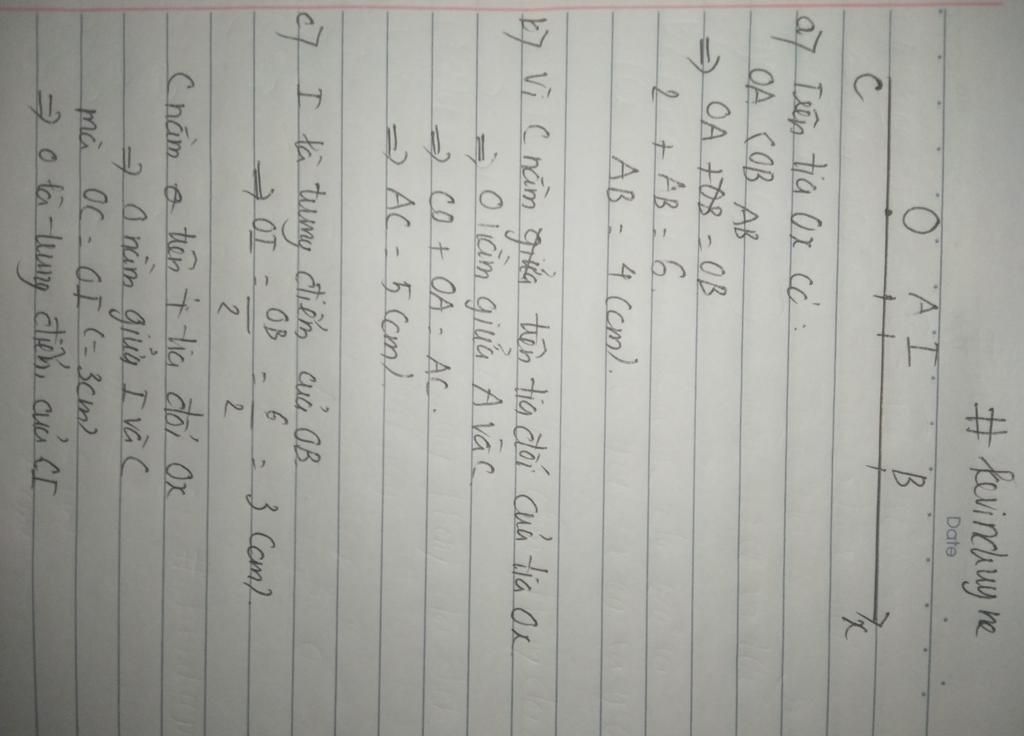 # kevinduyne
Date
O A I B
C x
a) Trên tia Ox có:
OA < OB AB
=> OA + OB = OB
2 + AB = 6.
AB = 4 (cm).
b) Vì C nằm giữa trên tia đối của tia Ox
=> O nằm giữa A và C
=> CO + OA = AC.
=> AC = 5 (cm)
c) I là trung điểm của OB
=> OI = OB/2 = 6/2 = 3 (cm).
C nằm trên tia đối Ox
=> O nằm giữa I và C
mà OC = OI (= 3cm)
=> O là trung điểm của CI